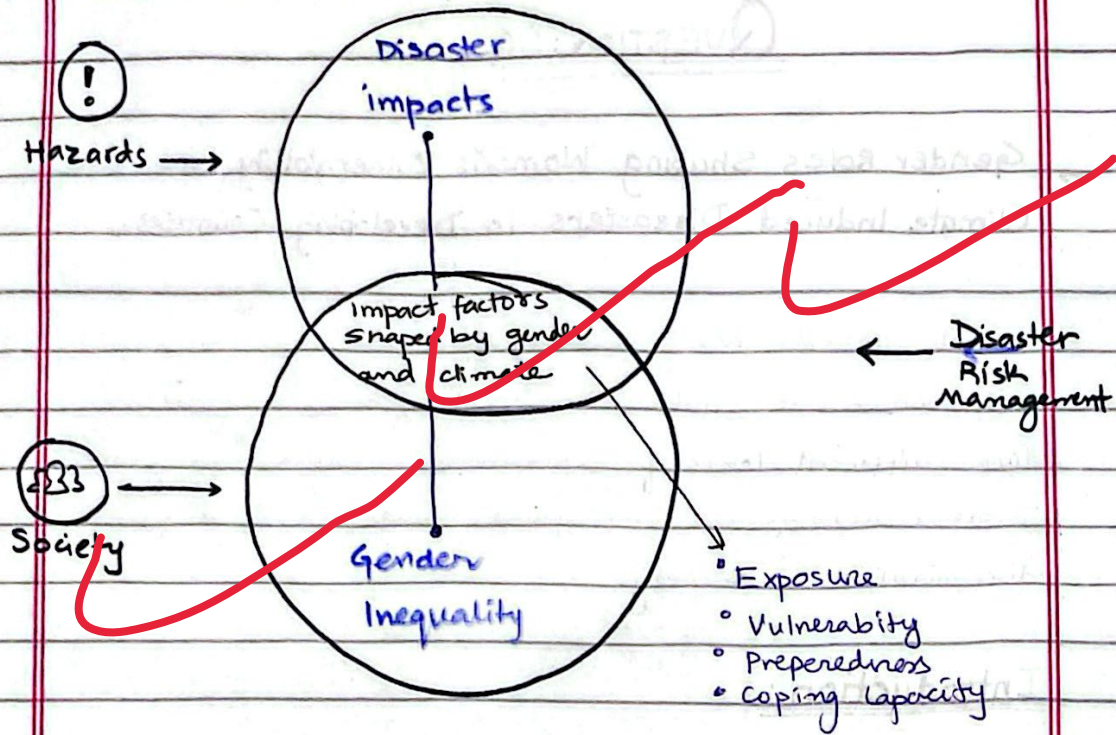 Disaster
impacts
!
Hazards
Impact factors
shaped by gender
and climate
Disaster
Risk
Management
Society
Gender
Inequality
Exposure
Vulnerabity
Preperedness
Coping Capacity